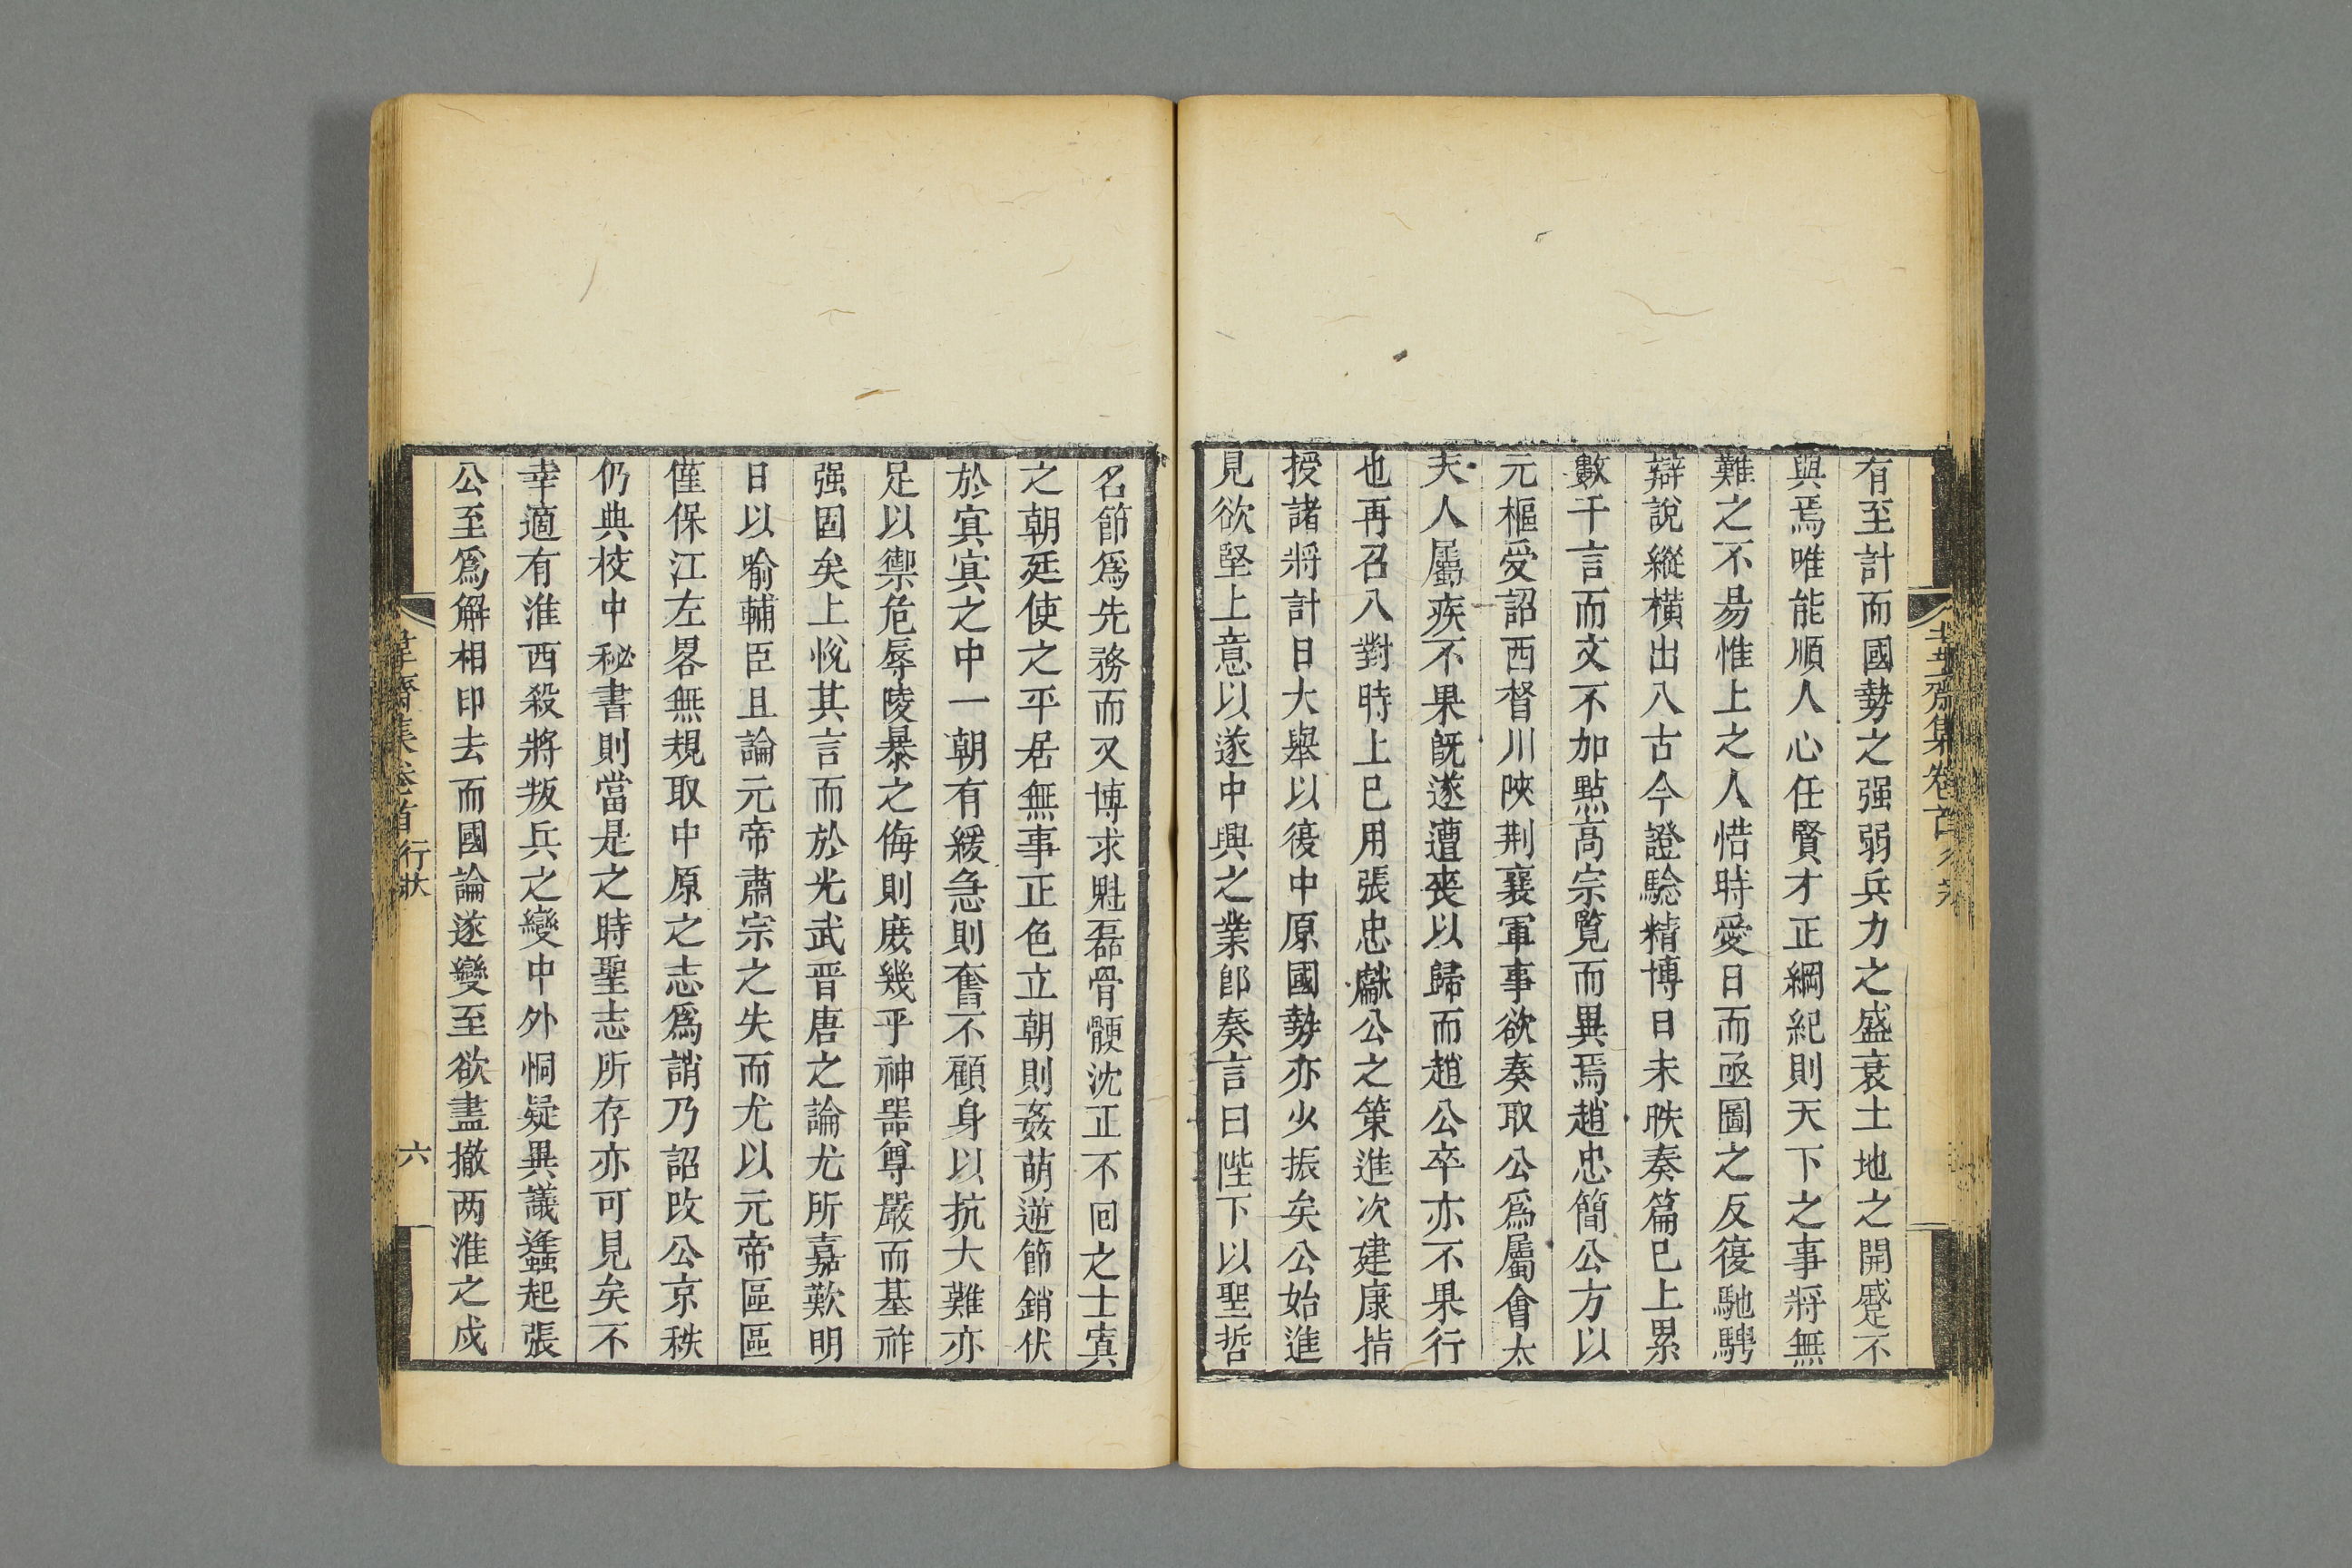 韋齋集卷首
有至計而國勢之强弱兵力之盛衰土地之開蹙不
與焉唯能順人心任賢才正綱紀則天下之事將無
難之不易惟上之人惜時愛日而亟圖之反復馳騁
辯說縱橫出入古今證驗精博日未昳奏篇已上累
數千言而文不加點高宗覧而異焉趙忠簡公方以
元樞受詔西督川陜荆襄軍事欲奏取公爲屬會太
夫人屬疾不果旣遂遭䘮以歸而趙公卒亦不果行
也再召入對時上已用張忠獻公之策進次建康指
授諸將計日大舉以復中原國勢亦少振矣公始進
見欲堅上意以遂中興之業卽奏言曰陛下以聖哲
名節爲先務而又博求魁磊骨骾沈正不回之士寘
之朝廷使之平居無事正色立朝則姦萌逆節銷伏
於寘寘之中一朝有緩急則奮不顧身以抗大難亦
足以禦危辱陵暴之侮則庻幾乎神器尊嚴而基祚
强固矣上悅其言而於光武晋唐之論尤所嘉歎明
日以喻輔臣且論元帝肅宗之失而尤以元帝區區
僅保江左畧無規取中原之志爲誚乃詔改公京秩
仍典校中秘書則當是之時聖志所存亦可見矣不
幸適有淮西殺將叛兵之變中外恫疑異議蠭起張
公至爲解相印去而國論遂變至欲盡撤两淮之戍
韋齋集卷首 行狀 六